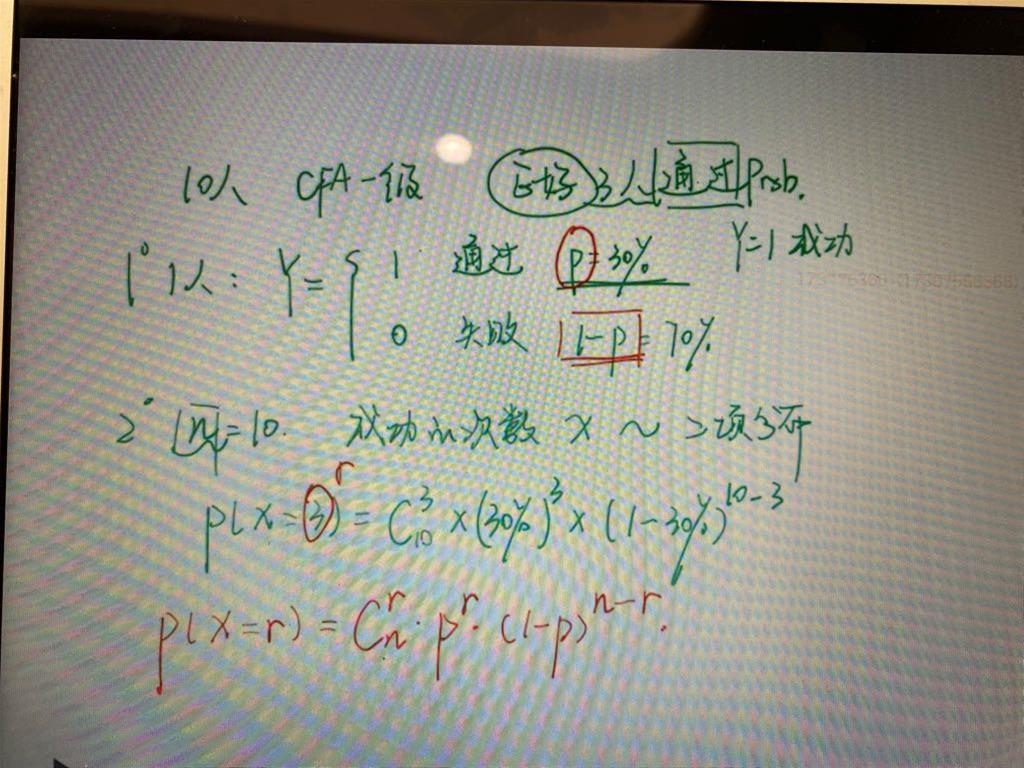 10人 CFA一级 正好3人通过 Prob.
1° 1人: Y = { 1 通过 p=30% Y=1 成功
0 失败 1-p = 70%
2° n=10. 成功的次数 X ~ 二项分布
r
P(X=3) = C₁₀³ × (30%)³ × (1-30%)¹⁰⁻³
P(X=r) = Cₙʳ · pʳ · (1-p)ⁿ⁻ʳ.